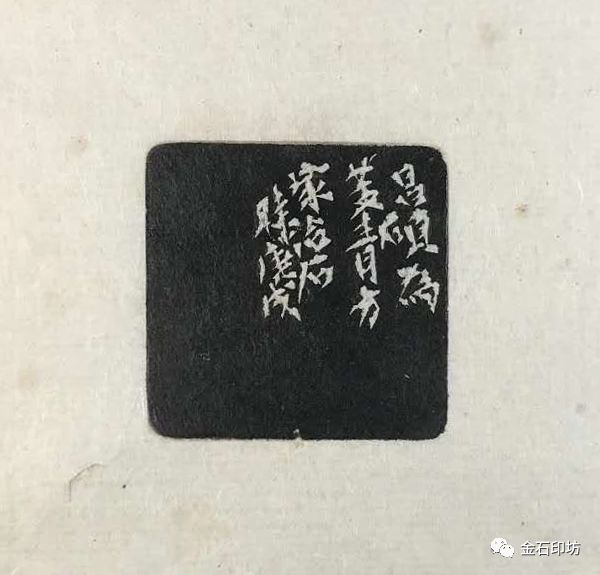 昌碩為
菱青方
家治石
時庚戌
金石印坊